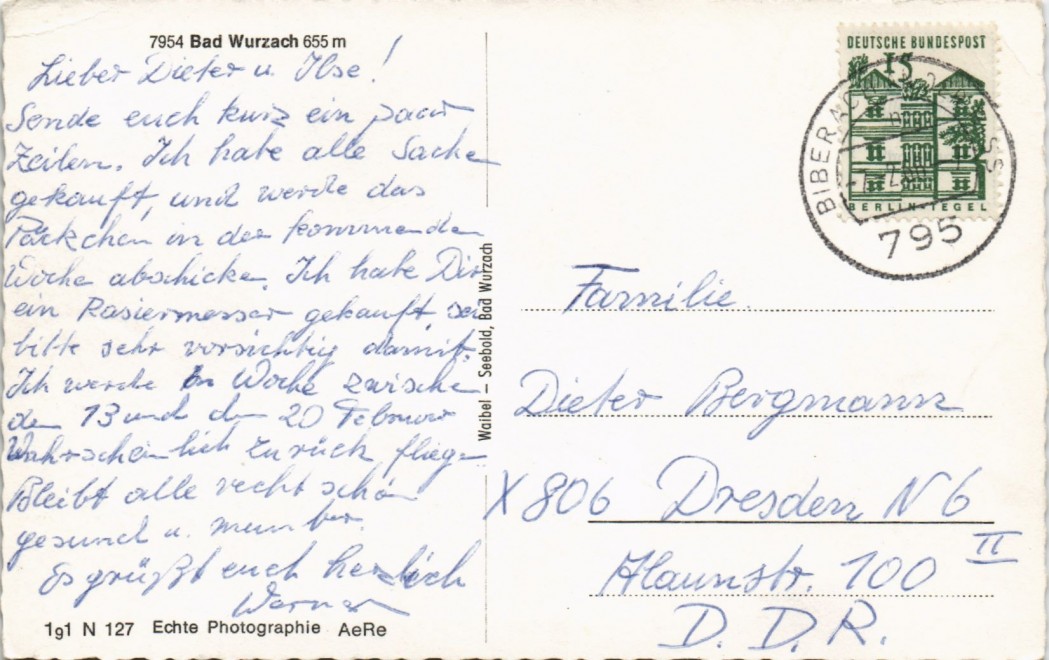 7954 Bad Wurzach 655 m
Lieber Dieter u. Ilse!
Sende euch kurz ein paar
Zeilen. Ich habe alle Sache
gekauft, und werde das
Päckchen in der kommenden
Woche abschicke. Ich habe Dir
ein Rasiermesser gekauft, sei
bitte sehr vorsichtig damit.
Ich werde Woche zwische
den 13 und den 20 Februar
Wahrscheinlich zurück fliege
Bleibt alle recht schön
gesund u. munter.
Es grüßt euch herzlich
Werner
191 N 127 Echte Photographie AeRe
Waibel – Seebold, Bad Wurzach
DEUTSCHE BUNDESPOST
15
BERLIN-TEGEL
BIBERACH
795
Familie
Dieter Bergmann
X 806 Dresden N 6
II
Alaunstr. 100
D. D. R.